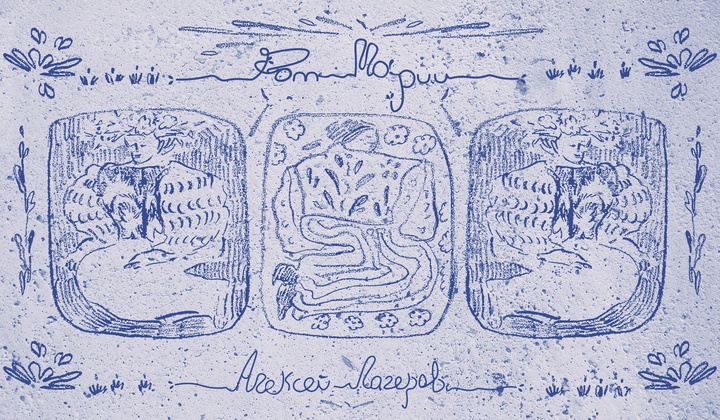 Рот Марии
Алексей Лагеров